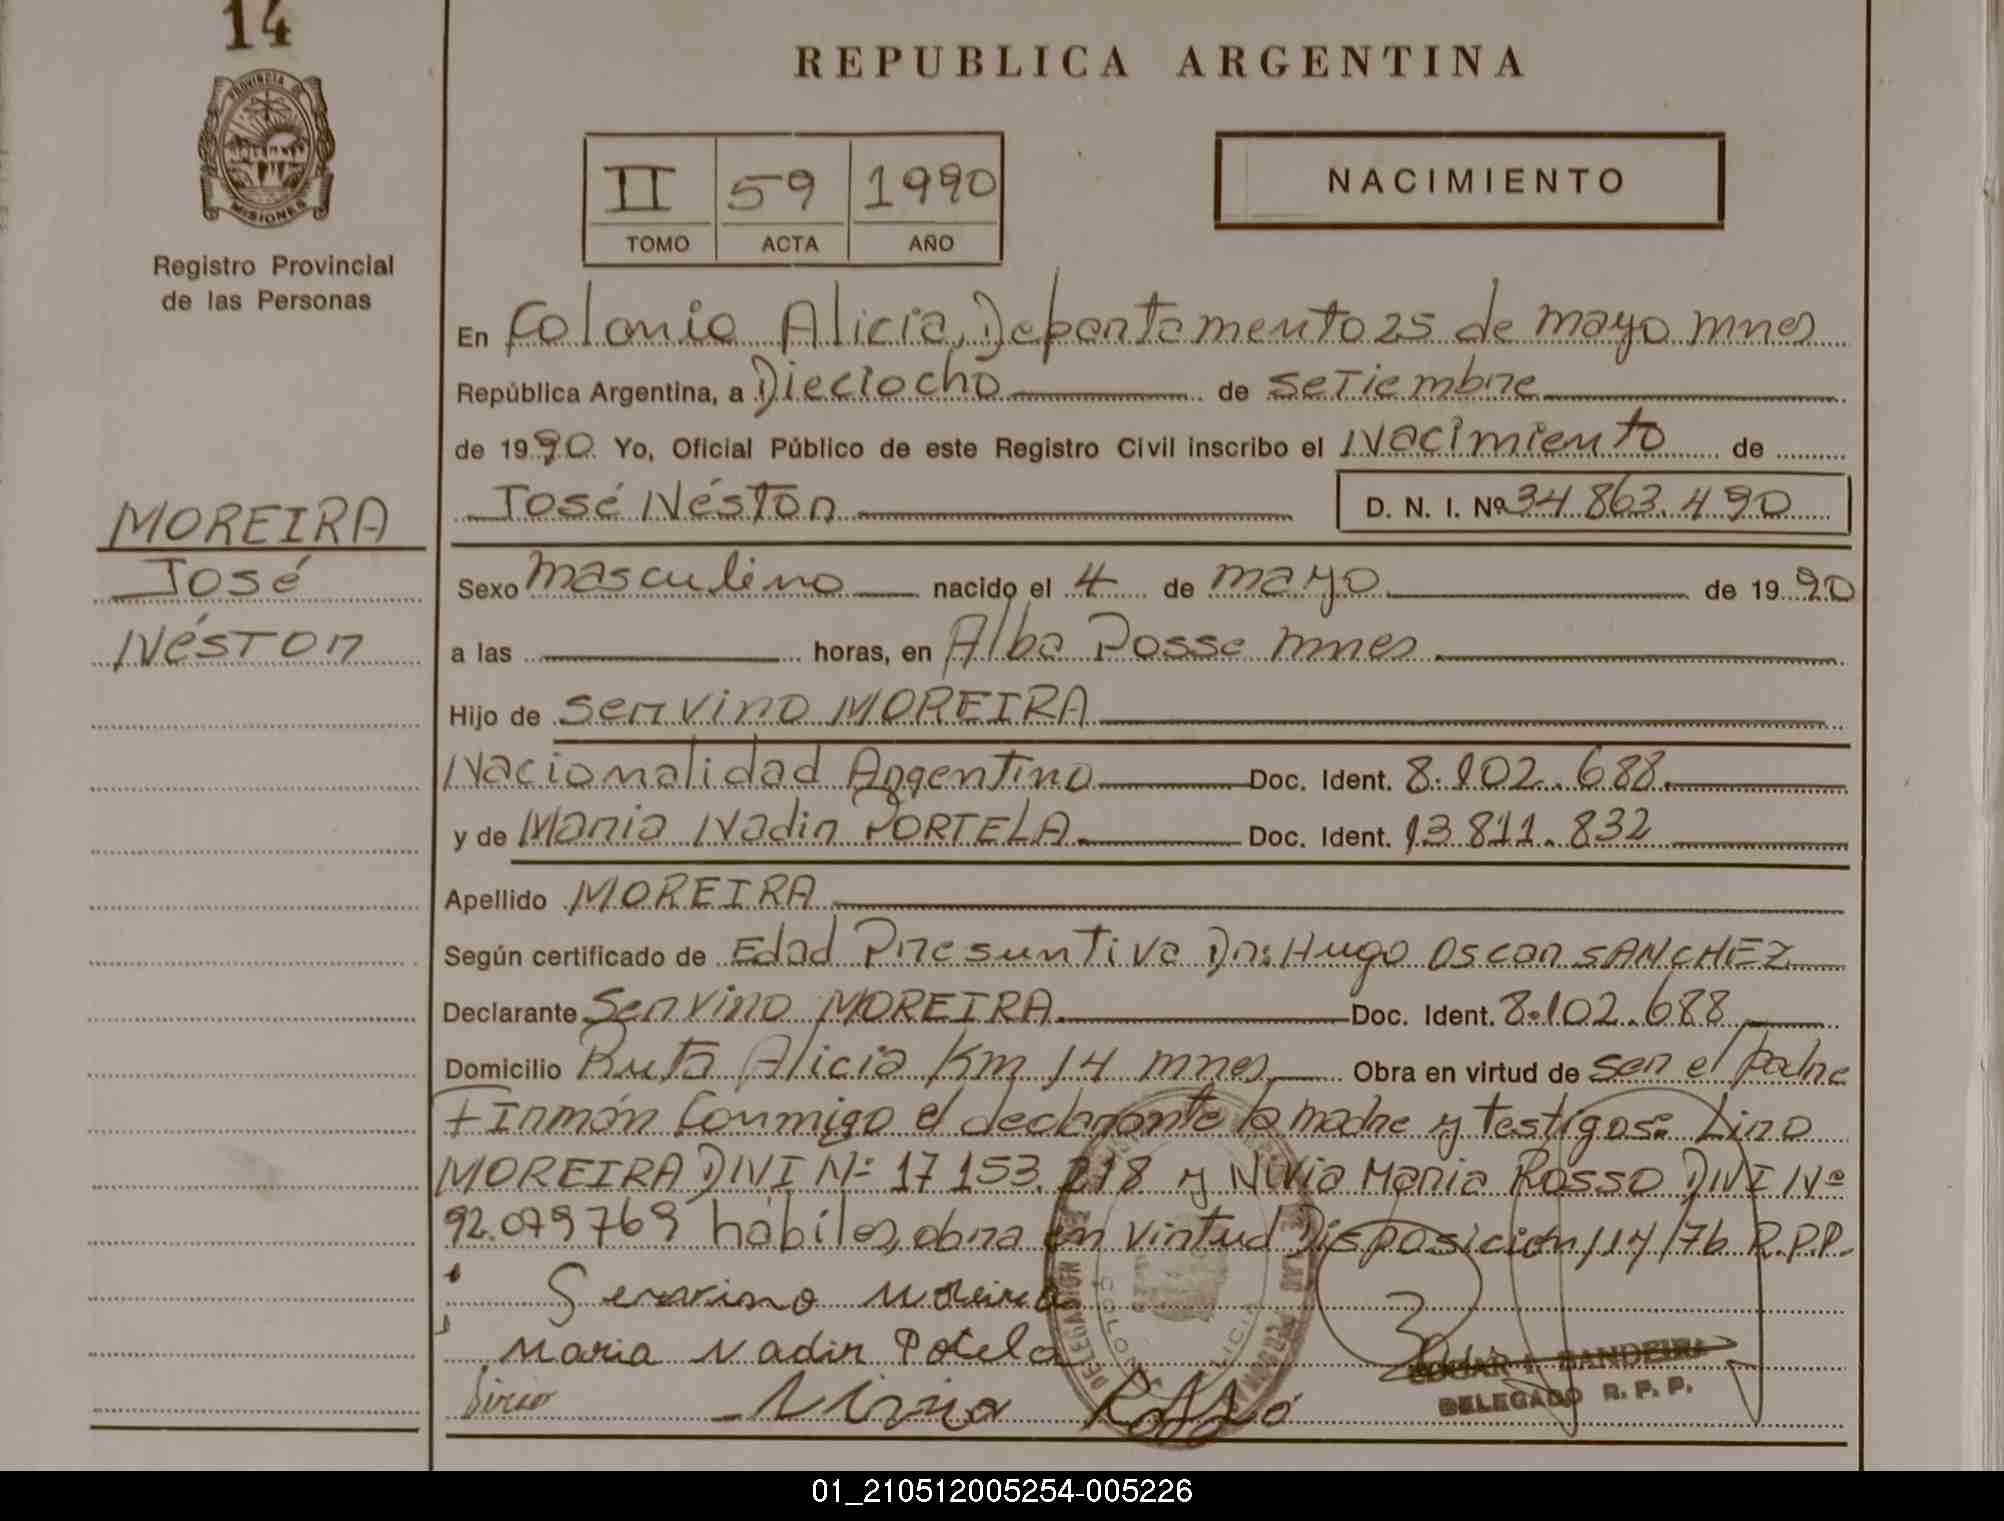 14
PROVINCIA DE
MISIONES
Registro Provincial
de las Personas
MOREIRA
José
Néstor
REPUBLICA ARGENTINA
II 59 1990
TOMO ACTA AÑO
NACIMIENTO
En Colonia Alicia, Departamento 25 de mayo mnes
República Argentina, a Dieciocho de setiembre
de 1990 Yo, Oficial Público de este Registro Civil inscribo el Nacimiento de
José Néstor D. N. I. Nº 34.863.490
Sexo masculino nacido el 4 de mayo de 1990
a las horas, en Alba Posse mnes
Hijo de Servino MOREIRA
Nacionalidad Argentino Doc. Ident. 8.102.688
y de Maria Nadir PORTELA Doc. Ident. 13.811.832
Apellido MOREIRA
Según certificado de Edad Presuntiva Dr: Hugo Oscar SANCHEZ
Declarante Servino MOREIRA Doc. Ident. 8.102.688
Domicilio Ruta Alicia Km 14 mnes Obra en virtud de ser el padre
Firmán Conmigo el declarante la madre y testigos: Lino
MOREIRA DNI Nº 17 153.218 y Nivia Maria Rosso DNI Nº
92.079769 hábiles, obra en virtud Disposición 114/76 R.P.P.
Servino Moreira
Maria Nadir Potela
Nivia Rosso
DELEGACION
COLONIA ALICIA
BANDEIRA
DELEGADO R. P. P.
01_210512005254-005226